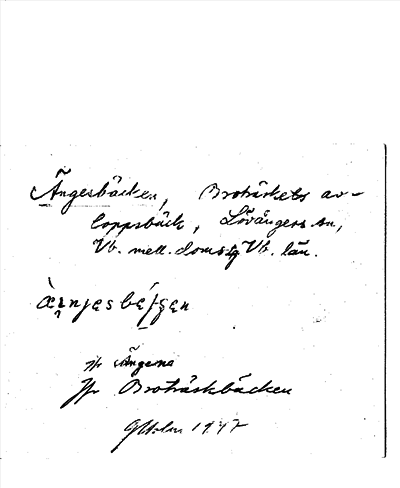 Ängesbäcken, Broträskets av-
loppsbäck, Lövångers sn,
Vb. mell. doms:g Vb. län.
jfr Ängena
Jfr Broträskbäcken
GHolm 1947